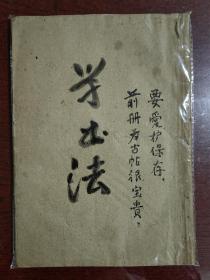 学书法
要爱护保存，
前册为古帖很宝贵，